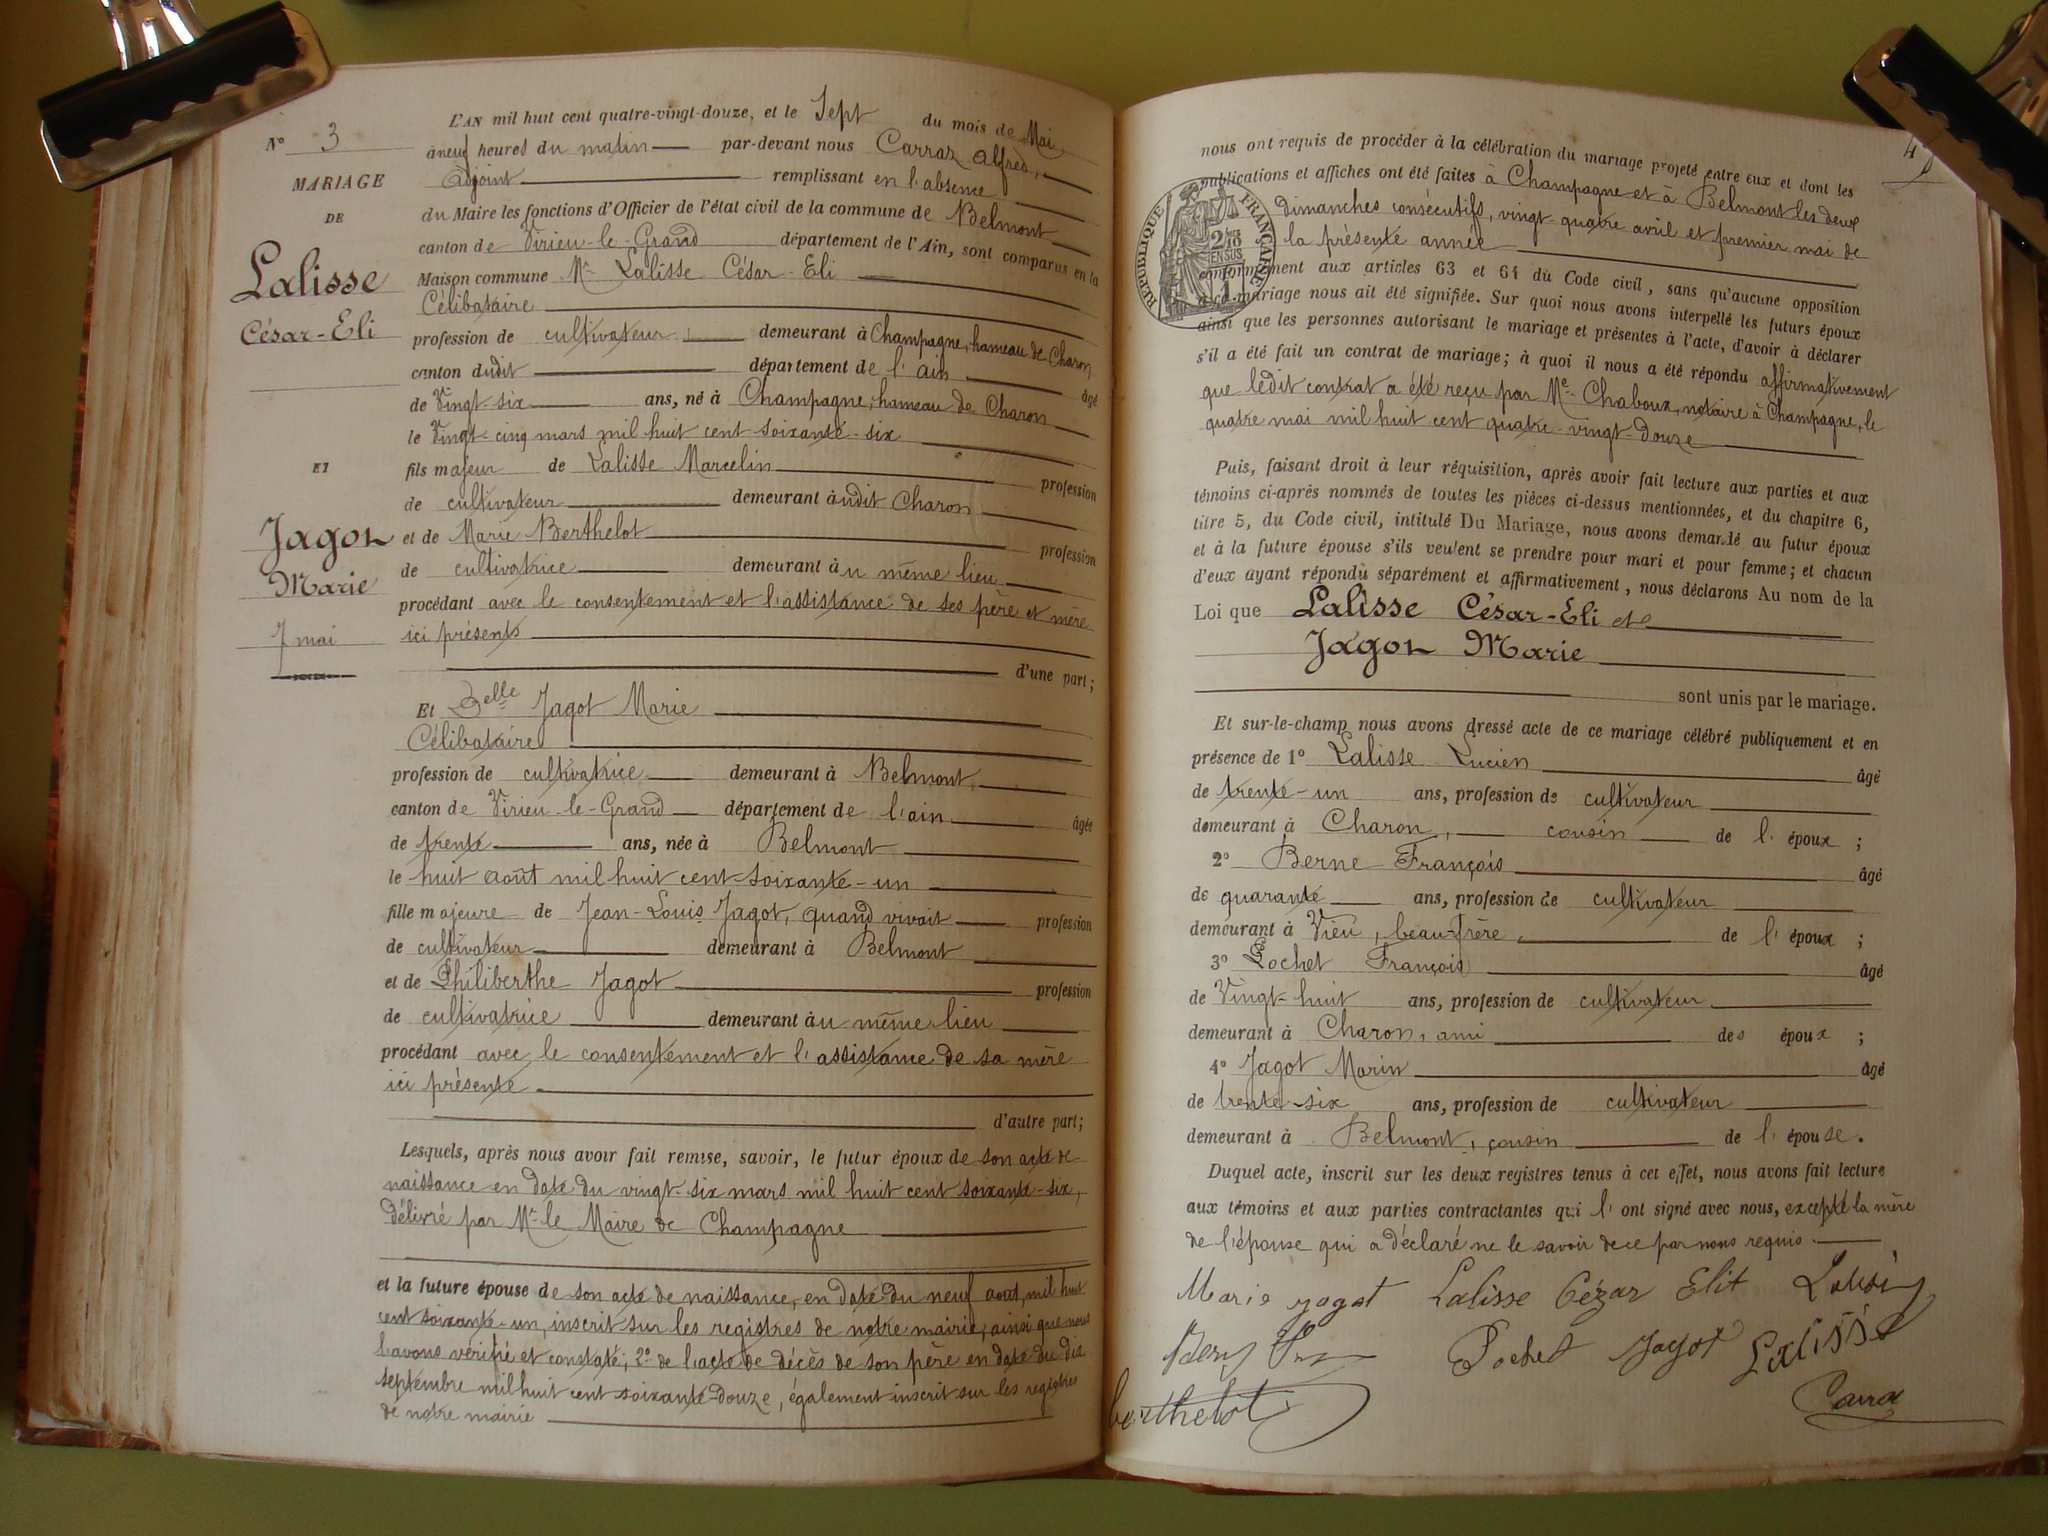 N° 3
MARIAGE
DE
Lalisse
César-Eli
ET
Jagot
Marie
7 mai
L'AN mil huit cent quatre-vingt-douze, et le Sept du mois de Mai
à neuf heures du matin par-devant nous Carraz Alfred,
Adjoint remplissant en l'absence
du Maire les fonctions d'Officier de l'état civil de la commune de Belmont
canton de Virieu-le-Grand département de l'Ain, sont comparus en la
Maison commune Mr Lalisse César-Eli
Célibataire
profession de cultivateur, demeurant à Champagne, hameau de Charon
canton dudit département de l'ain âgé
de Vingt-six ans, né à Champagne, hameau de Charon
le Vingt-cinq mars mil huit cent soixante-six
fils majeur de Lalisse Marcelin profession
de cultivateur demeurant audit Charon
et de Marie Berthelot profession
de cultivatrice demeurant au même lieu
procédant avec le consentement et l'assistance de ses père et mère
ici présents
d'une part;
Et Delle Jagot Marie
Célibataire
profession de cultivatrice demeurant à Belmont,
canton de Virieu-le-Grand département de l'ain âgée
de trente ans, née à Belmont
le huit août mil huit cent soixante-un
fille majeure de Jean-Louis Jagot, quand vivait profession
de cultivateur demeurant à Belmont
et de Philiberthe Jagot profession
de cultivatrice demeurant au même lieu
procédant avec le consentement et l'assistance de sa mère
ici présente
d'autre part;
Lesquels, après nous avoir fait remise, savoir, le futur époux de son acte de
naissance en date du vingt-six mars mil huit cent soixante-six,
délivré par Mr le Maire de Champagne
et la future épouse de son acte de naissance, en date du neuf aout, mil huit
cent soixante-un, inscrit sur les registres de notre mairie, ainsi que nous
l'avons vérifié et constaté; 2° de l'acte de décès de son père en date du dix
septembre mil huit cent soixante-douze, également inscrit sur les registres
de notre mairie
nous ont requis de procéder à la célébration du mariage projeté entre eux et dont les
publications et affiches ont été faites à Champagne et à Belmont les deux
dimanches consécutifs, vingt-quatre avril et premier mai de
la présente année
RÉPUBLIQUE FRANÇAISE
2/10 EN SUS
conformément aux articles 63 et 64 du Code civil, sans qu'aucune opposition
à ce mariage nous ait été signifiée. Sur quoi nous avons interpellé les futurs époux
ainsi que les personnes autorisant le mariage et présentes à l'acte, d'avoir à déclarer
s'il a été fait un contrat de mariage; à quoi il nous a été répondu affirmativement
que ledit contrat a été reçu par Me Chaboux, notaire à Champagne, le
quatre mai mil huit cent quatre-vingt-douze
Puis, faisant droit à leur réquisition, après avoir fait lecture aux parties et aux
témoins ci-après nommés de toutes les pièces ci-dessus mentionnées, et du chapitre 6,
titre 5, du Code civil, intitulé Du Mariage, nous avons demandé au futur époux
et à la future épouse s'ils veulent se prendre pour mari et pour femme; et chacun
d'eux ayant répondu séparément et affirmativement, nous déclarons Au nom de la
Loi que Lalisse César-Eli et
Jagot Marie
sont unis par le mariage.
Et sur-le-champ nous avons dressé acte de ce mariage célébré publiquement et en
présence de 1° Lalisse Lucien âgé
de trente-un ans, profession de cultivateur
demeurant à Charon, cousin de l'époux;
2° Berne François âgé
de quarante ans, profession de cultivateur
demeurant à Vieu, beau-frère, de l'époux;
3° Pochet François âgé
de Vingt-huit ans, profession de cultivateur
demeurant à Charon, ami des époux;
4° Jagot Marin âgé
de trente-six ans, profession de cultivateur
demeurant à Belmont, cousin de l'épouse.
Duquel acte, inscrit sur les deux registres tenus à cet effet, nous avons fait lecture
aux témoins et aux parties contractantes qui l'ont signé avec nous, excepté la mère
de l'épouse qui a déclaré ne le savoir de ce par nous requis.
Marie jagot Lalisse Cézar Elit
Pochet Jagot Lalisse
berthelot Carraz